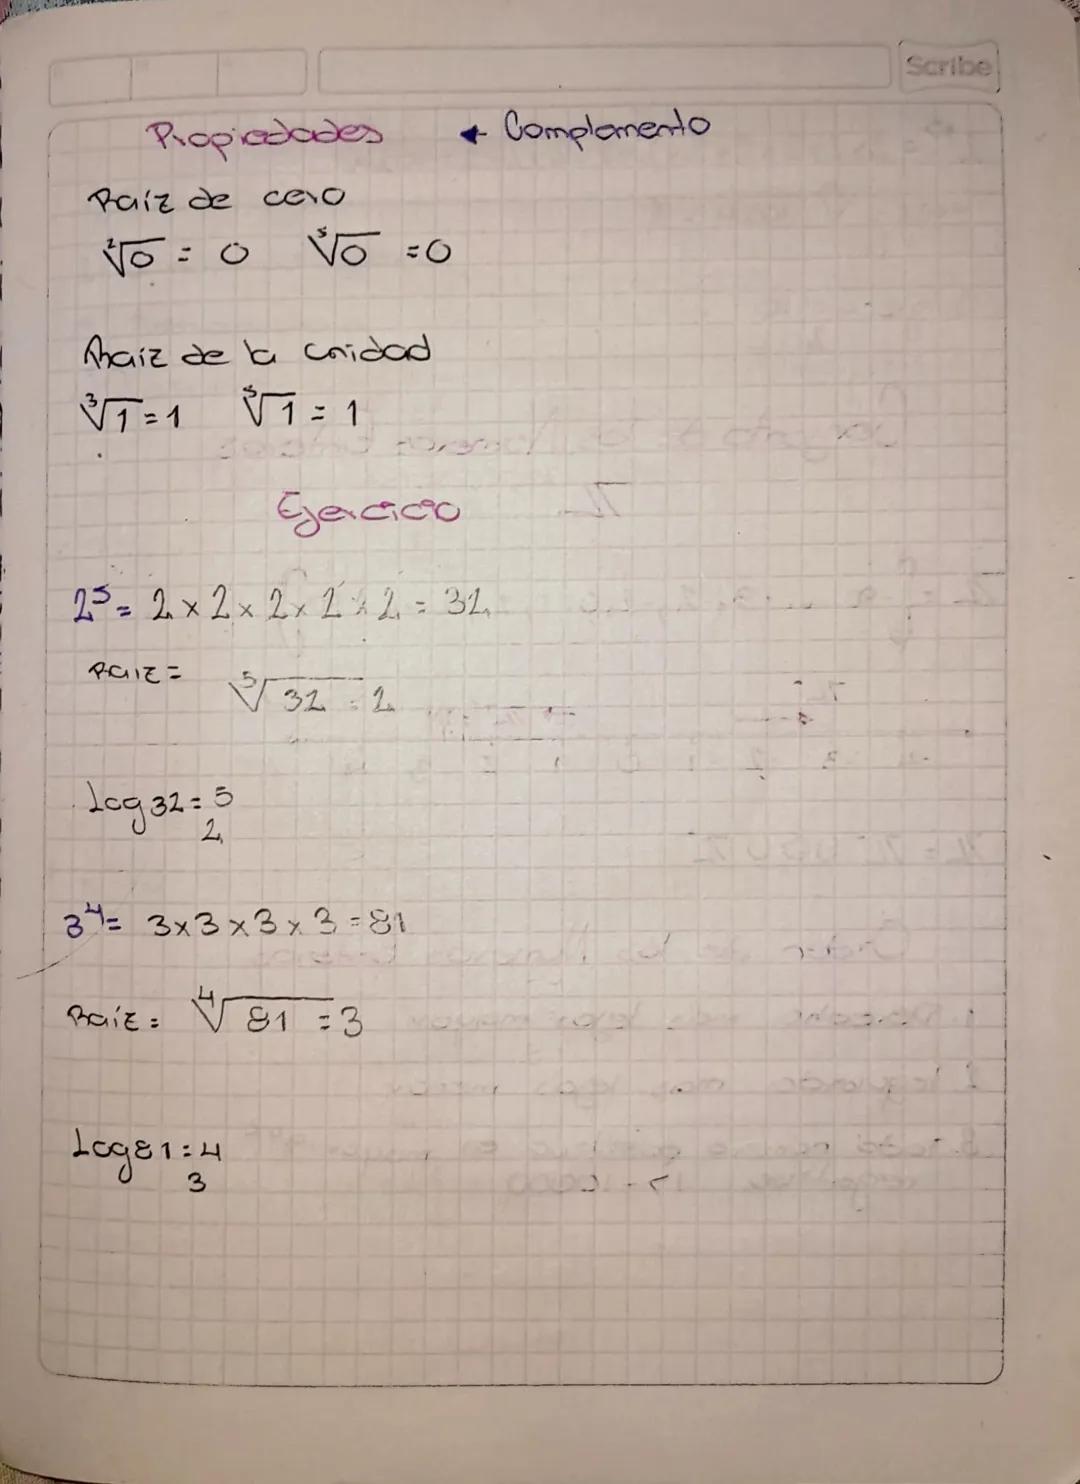 Scribe
Propiedades ← Complemento
Raíz de cero
²√0 = 0 ⁵√0 = 0
Raiz de la unidad
³√1 = 1 ⁵√1 = 1
Ejercicio
2⁵ = 2 x 2 x 2 x 2 x 2 = 32
Raiz =
⁵√32 = 2
Log 32 = 5
2
3⁴ = 3 x 3 x 3 x 3 = 81
Raíz = ⁴√81 = 3
Log 81 = 4
3